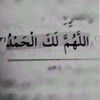 اللَّهُمَّ لَكَ الْحَمْدُ